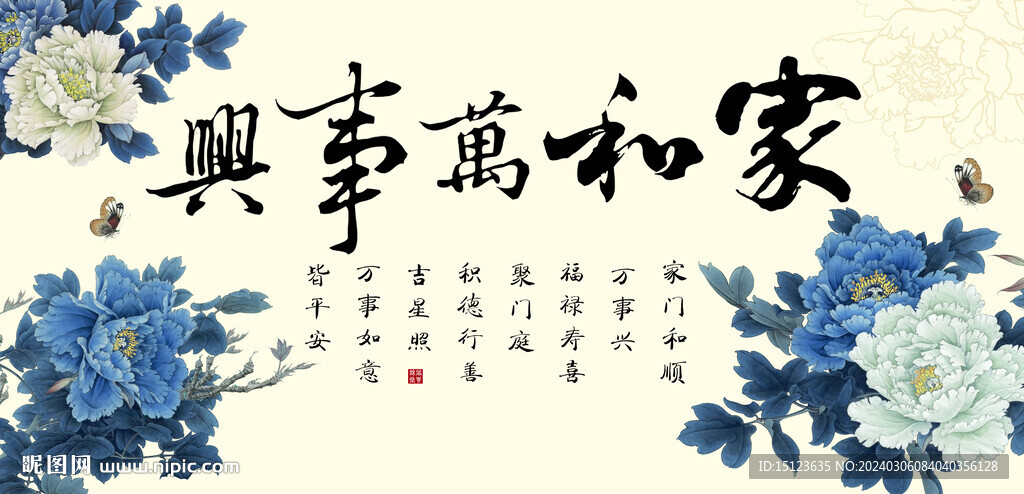 家和萬事興
家门和顺
万事兴
福禄寿喜
聚门庭
积德行善
吉星照
万事如意
皆平安
昵图网 www.nipic.com
ID:15123635 NO:20240306084040356128